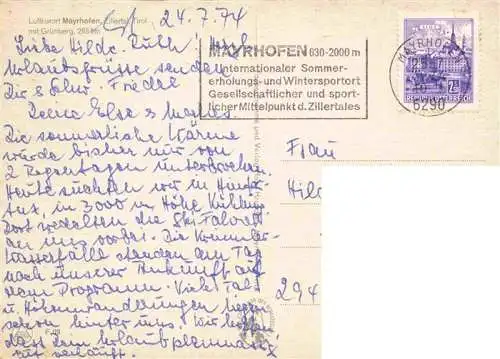 Luftkurort Mayrhofen, Zillertal, Tirol
mit Grünberg,
24.7.74
Liebe Hilde, Ruth
Urlaubsgrüsse senden
Dir
Deine Else &
Die sommerliche Wärme
wurde bisher nur von
2 Regentagen unterbrochen.
Heute suchten wir in Hinter-
tux, in 3000 m Höhe Kühlung.
Dort wedelten die Ski-
an uns vorbei. Die Krimmler
Wasserfälle standen am Tag
nach unserer Ankunft auf
dem Programm. Viele Tal
u. Höhenwanderungen liegen
schon hinter uns. Wir hoffen
dass dem Urlaub
MAYRHOFEN 630-2000 m
Internationaler Sommer-
erholungs- und Wintersportort
Gesellschaftlicher und sport-
licher Mittelpunkt d. Zillertales
MAYRHOFEN
6290
Frau
Hil
294